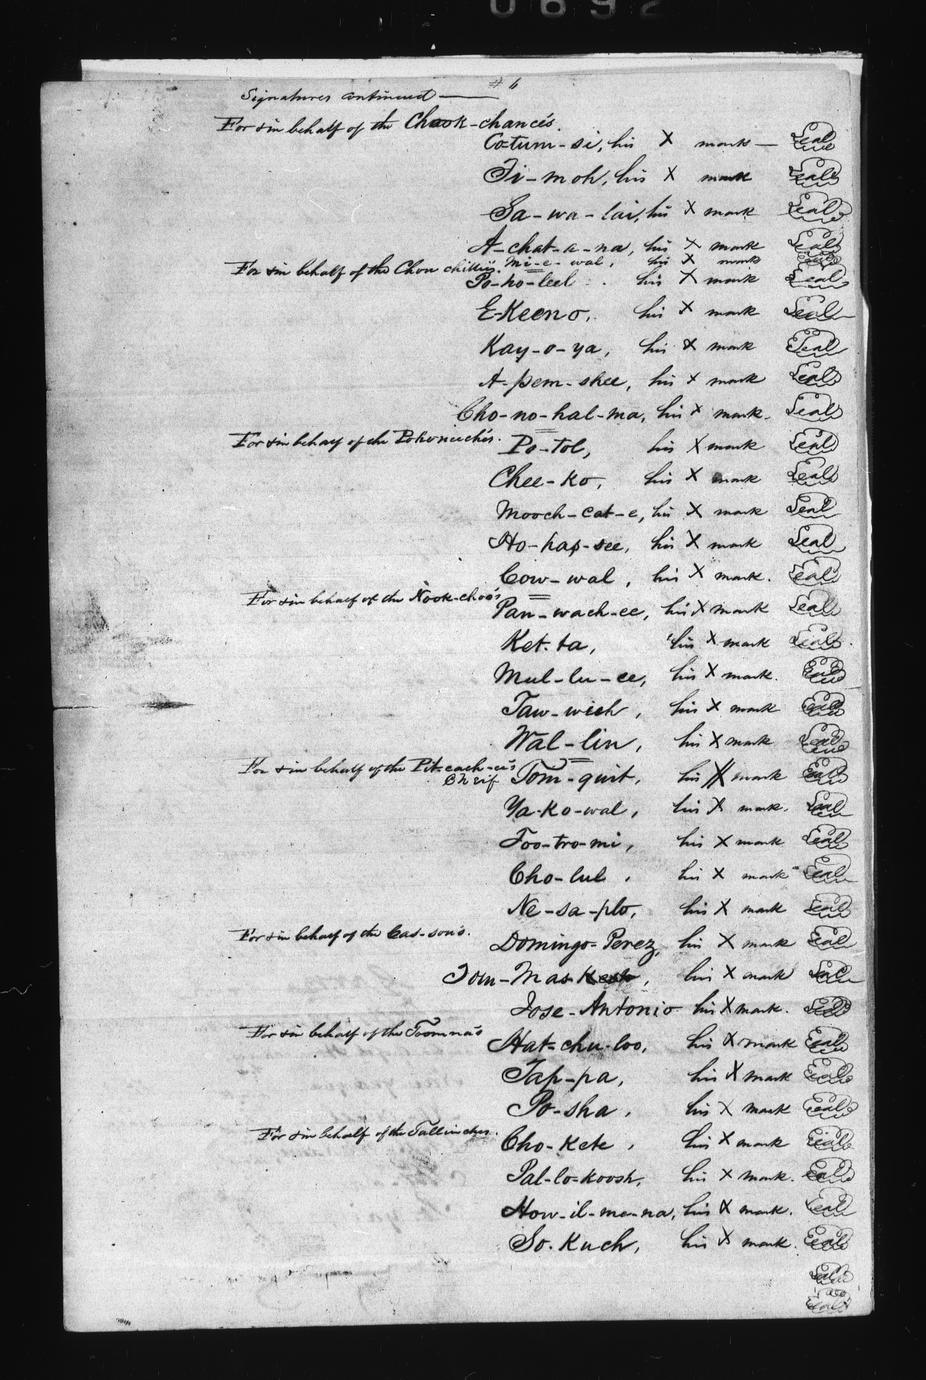 0692
# 6
Signatures continued
For & in behalf of the Chook-chancés.
Co-tum-si, his X mark Seal
Ti-moh, his X mark Seal
Sa-wa-lai, his X mark Seal
A-chat-a-na, his X mark Seal
Mi-e-wal, his X mark Seal
For & in behalf of the Chow chillies. Po-ho-leel his X mark Seal
E-Keeno, his X mark Seal
Kay-o-ya, his X mark Seal
A-pem-shee, his X mark Seal
Cho-no-hal-ma, his X mark. Seal
For & in behalf of the Pohoneechés. Po-tol, his X mark Seal
Chee-ko, his X mark Seal
Mooch-cat-e, his X mark Seal
Ho-hap-see, his X mark Seal
Cow-wal, his X mark. Seal
For & in behalf of the Nook-choós Pan-wach-ee, his X mark Seal
Ket-ta, his X mark Seal
Mul-lu-ee, his X mark. Seal
Taw-wich, his X mark Seal
Wal-lin, his X mark Seal
For & in behalf of the Pit-cach-eés
Cheif Tom-quit, his X mark Seal
Ya-ko-wal, his X mark. Seal
Too-tro-mi, his X mark Seal
Cho-lul, his X mark Seal
Ne-sa-plo, his X mark Seal
For & in behalf of the Cas-sons. Domingo-Perez, his X mark Seal
Tom-Mas his X mark Seal
Jose-Antonio his X mark. Seal
For & in behalf of the Toomnas Hat-chu-loo, his X mark Seal
Tap-pa, his X mark Seal
Po-sha, his X mark Seal
For & in behalf of the Tallinches. Cho-Kete, his X mark Seal
Pal-lo-koosh, his X mark. Seal
How-il-me-na, his X mark. Seal
So-Kuch, his X mark. Seal
Seal
Seal